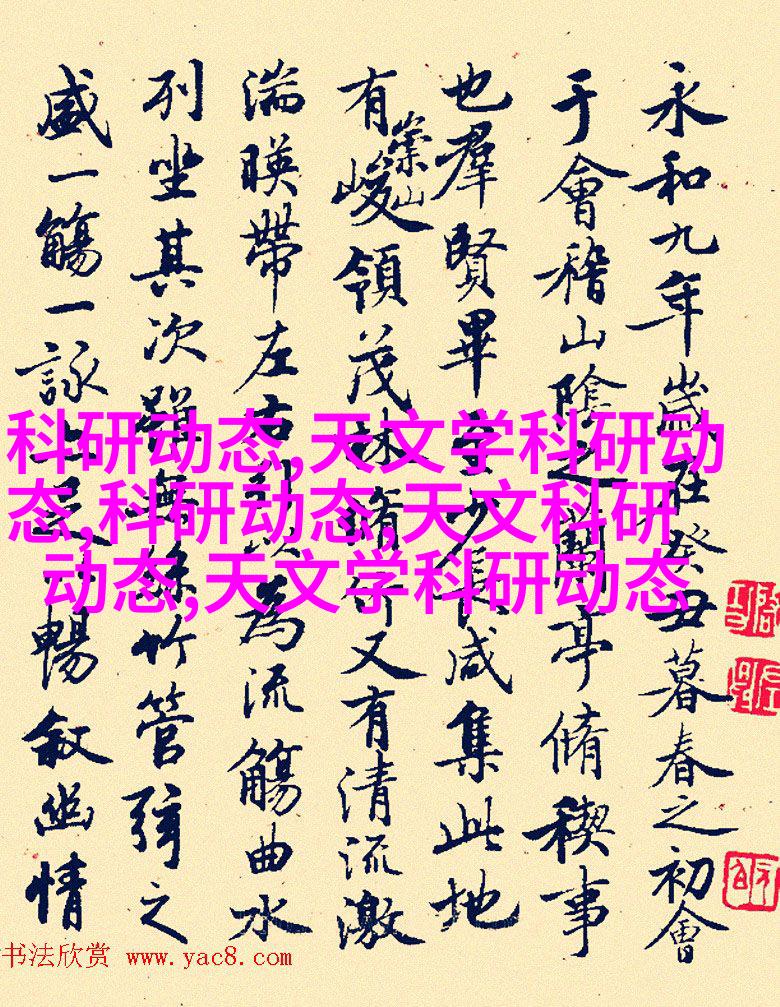 永和九年歲在癸丑暮春之初會
于會稽山陰之蘭亭脩稧事
也羣賢畢至少長咸集此地
有崇山峻領茂林脩竹又有清流激
湍暎帶左右引以為流觴曲水
列坐其次雖無絲竹管弦之
盛一觴一詠足暢敘幽情
科研动态,天文学科研动
态,科研动态,天文科研
动态,天文学科研动态
书法欣赏 www.yac8.com